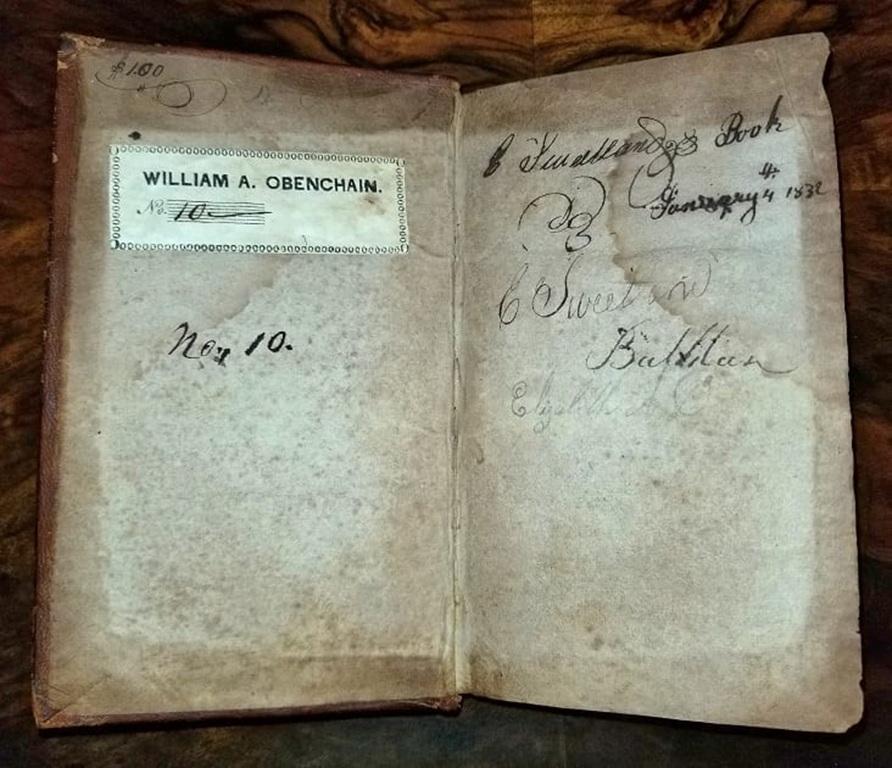 $1.00
WILLIAM A. OBENCHAIN.
No. 10
No, 10.
C Sweetland's Book
4
January 4 1832
C Sweetland
Elizabeth